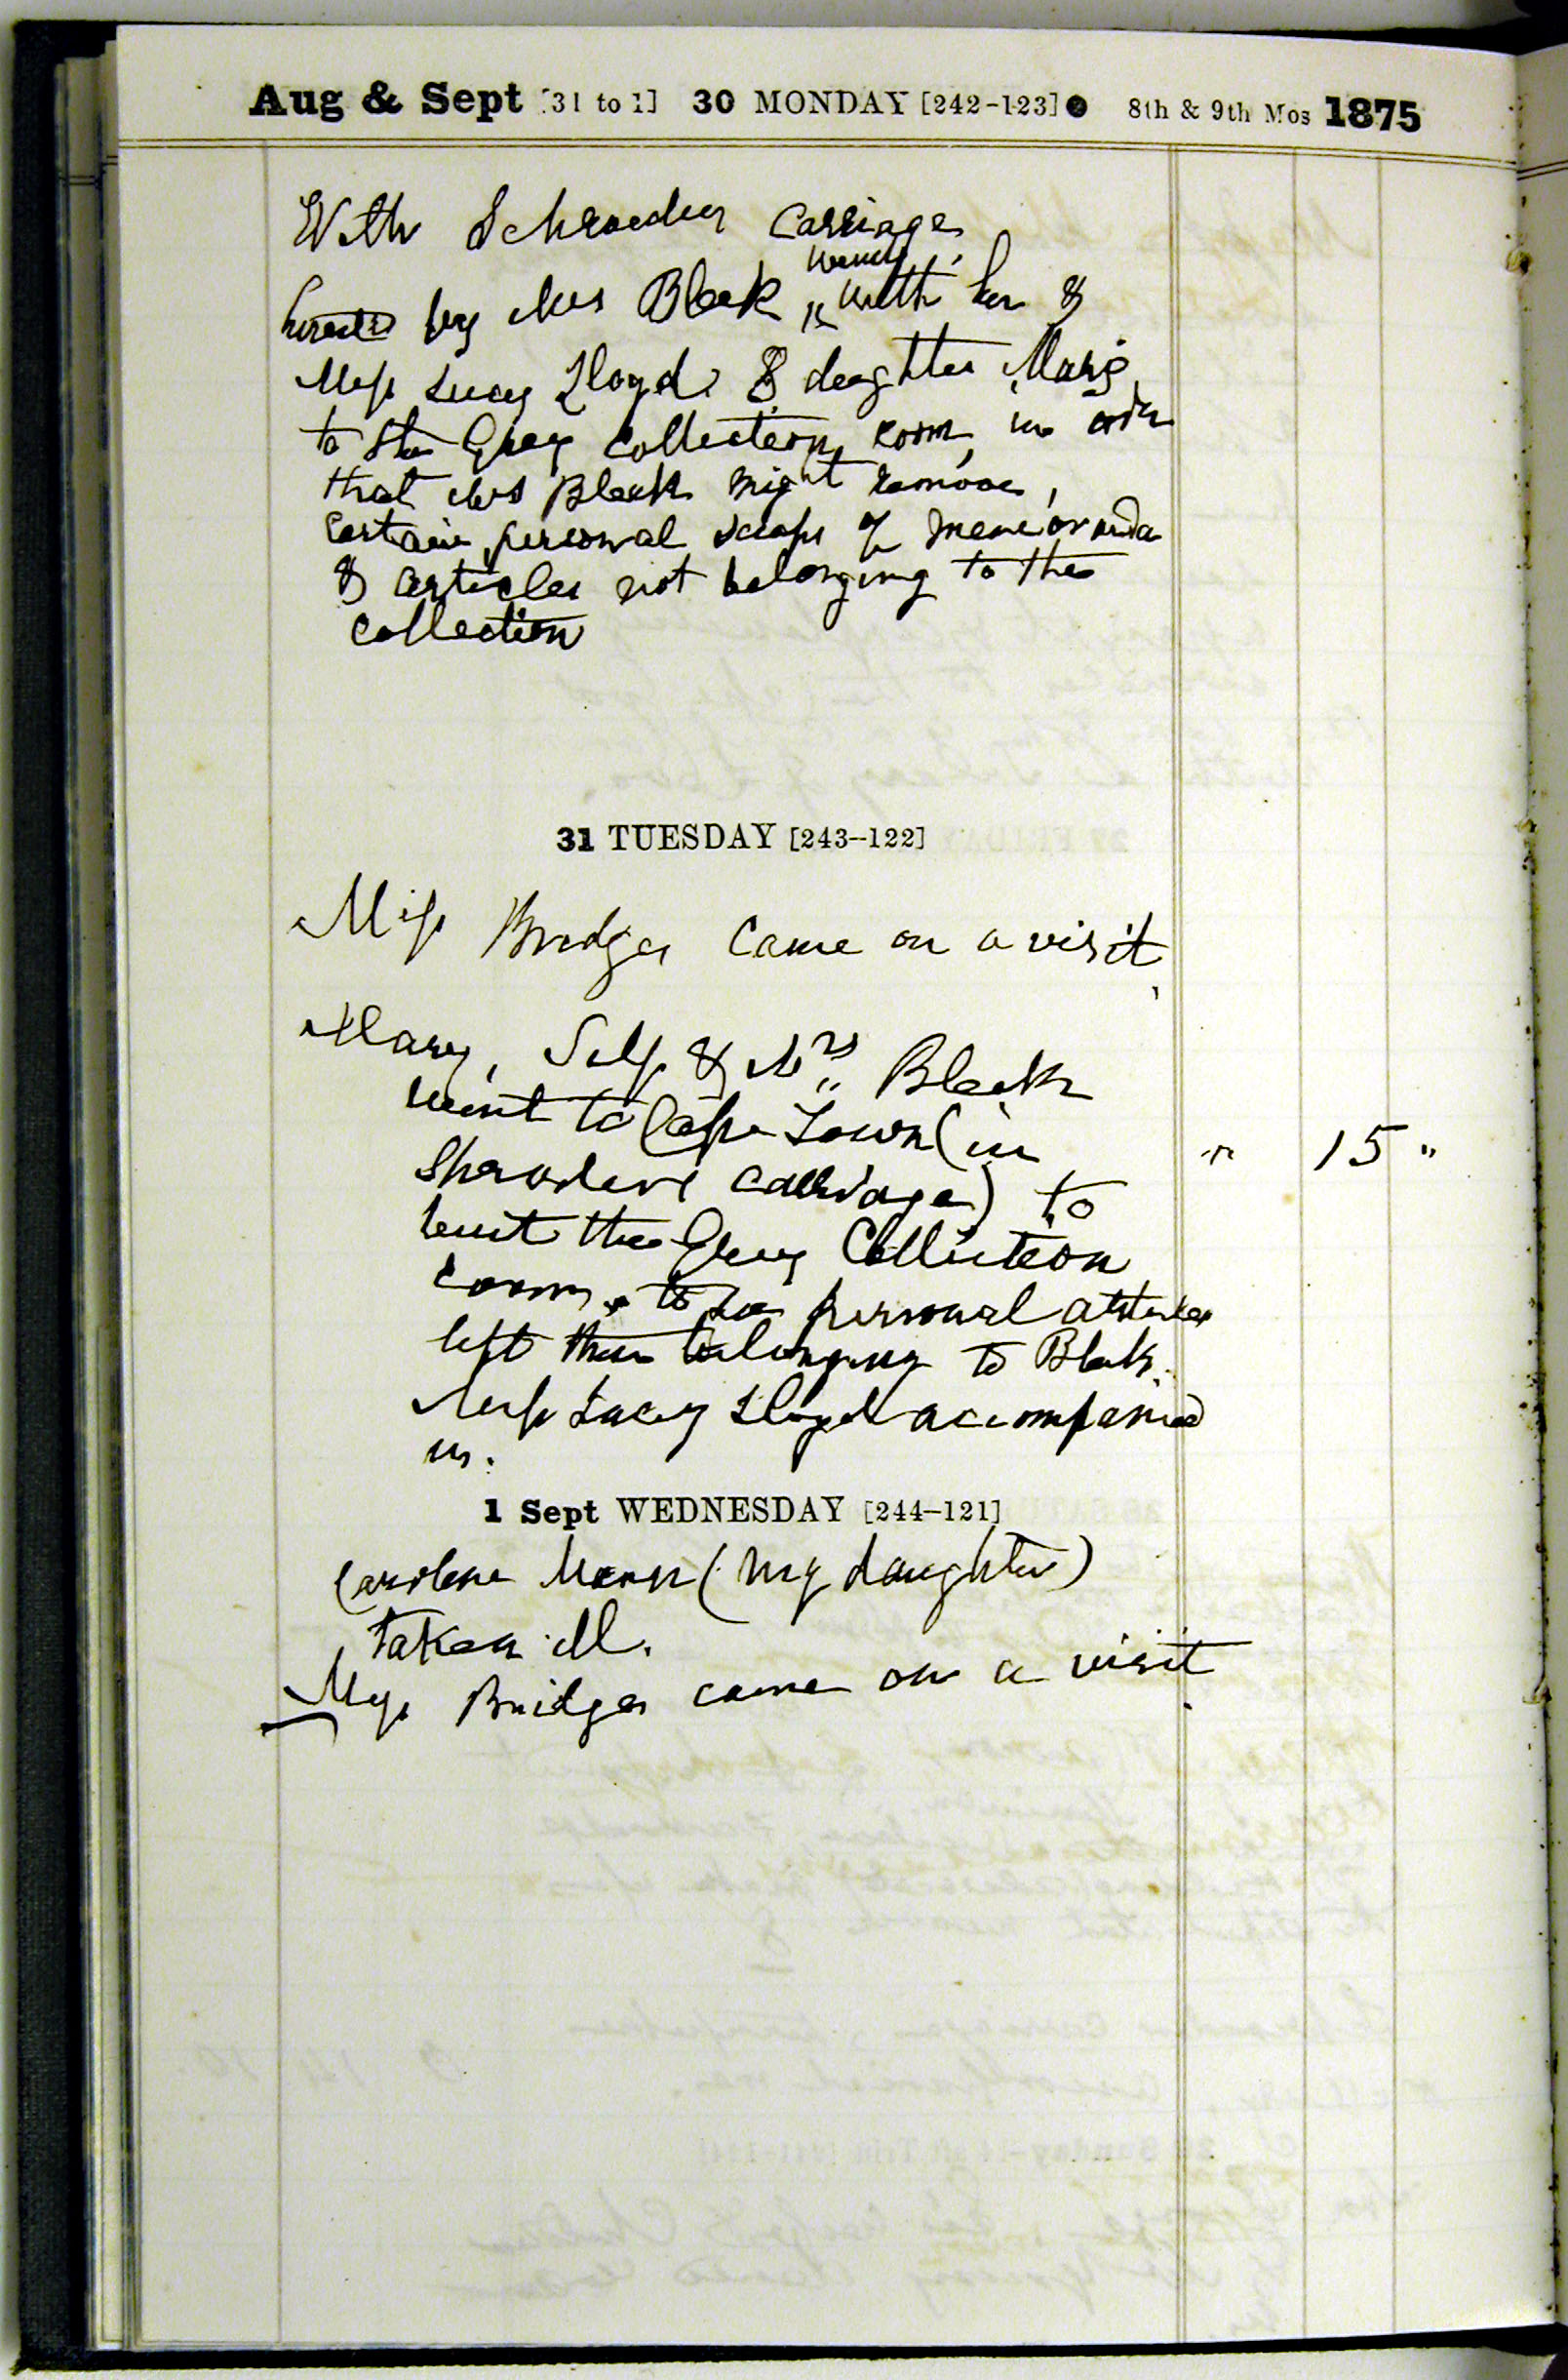 Aug & Sept [31 to 1] 30 MONDAY [242-123] 8th & 9th Mos 1875
With Schroeder Carriage,
went
hired by Mrs Bleek with her &
Miss Lucy Lloyd & daughter Mary
to the Grey Collection room, in order
that Mrs Bleek might remove,
certain personal scraps of memoranda
& articles not belonging to the
collection
31 TUESDAY [243-122]
Miss Bridges came on a visit
Mary, Self & Mrs Bleek
went to Cape Town (in
Shroders carriage) to " 15 "
the Grey Collection
room, to personal articles
left there belonging to Bleek.
Miss Lucy Lloyd accompanied
us.
1 Sept WEDNESDAY [244-121]
Caroline Mann (my daughter)
taken ill.
Miss Bridges came on a visit